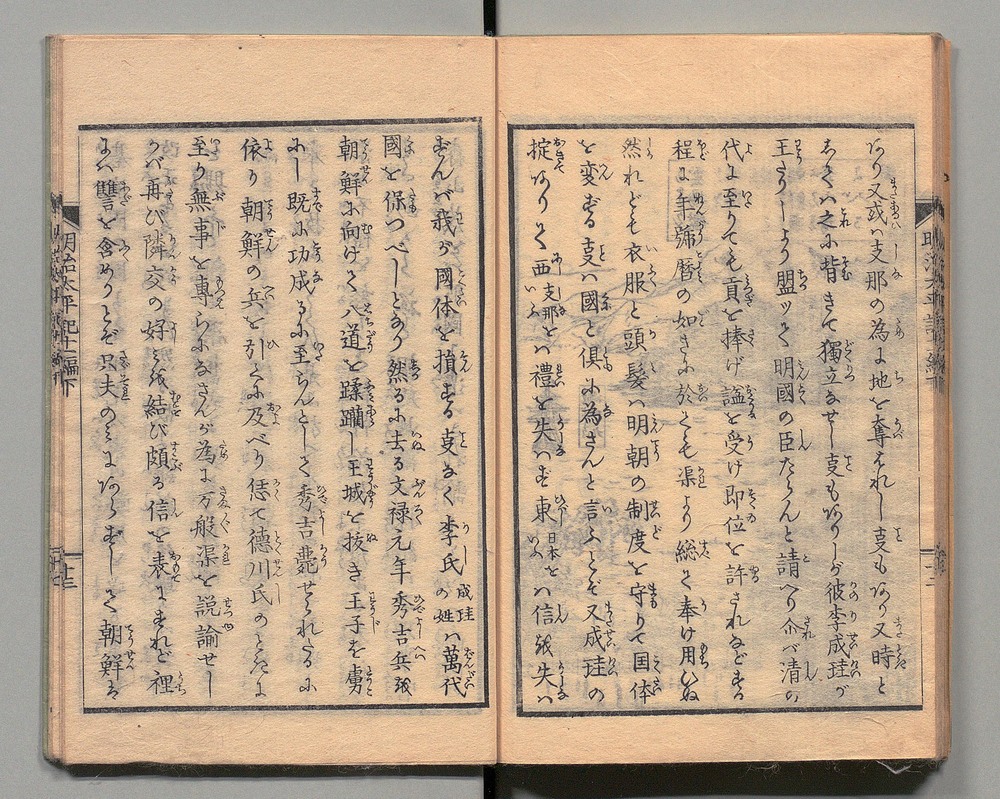 あり又或ハ支那の為に地を奪はれし叓もあり又時と
しては之に背きて獨立なせし叓もありしが彼李成珪が
王たりしより盟ッて明國の臣たらんと請へり尓ば清の
代に至りても貢を捧げ諡を受け即位を許されなどする
程に年號暦の如きに於ても渠より総て奉け用ひぬ
然れども衣服と頭髪ハ明朝の制度を守りて国体
を変ずる叓ハ國と倶に為さんと言ふとぞ又成珪の
掟ありて西支那をハ禮を失はず東日本をハ信を失ハ
ずんバ我が國体を損する叓なく李氏成珪の姓ハ萬代
國を保つべしとあり然るに去る文禄元年秀吉兵を
朝鮮に向けて八道を蹂躙し王城を抜き王子を虜
にし既に功成るに至らんとして秀吉薨せられたるに
依り朝鮮の兵を引くに及べり偖て徳川氏のときに
至り無事を専らになさんが為に万般渠を説諭せし
かバ再び隣交の好みを結び頗る信を表にすれど裡
にハ讐を含めりとぞ只夫のミにあらずして朝鮮は
明治太平記十二編下
十三